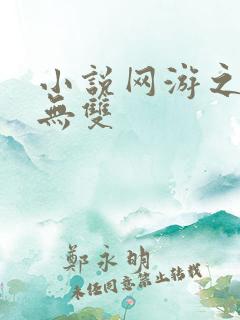 小説网游之
無雙
鄭永明
未经同意禁止转载